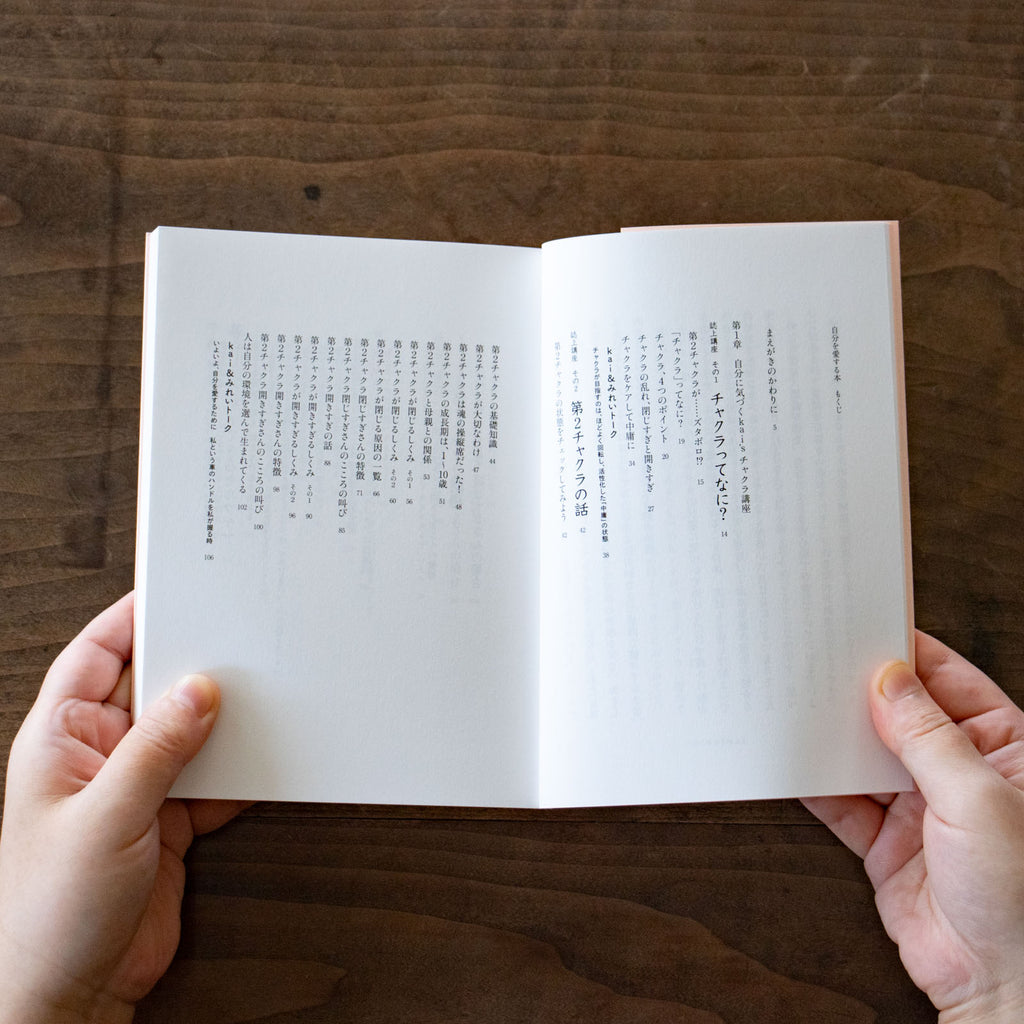 自分を愛する本　もくじ
まえがきのかわりに　5
第1章　自分に気づくkai'sチャクラ講座
誌上講座　その1　チャクラってなに?　14
第2チャクラが……ズタボロ!?　15
「チャクラ」ってなに?　19
チャクラ・4つのポイント　20
チャクラの乱れ、閉じすぎと開きすぎ　27
チャクラをケアして中庸に　34
kai&みれいトーク
チャクラが目指すのは、ほどよく回転し、活性化した「中庸」の状態　38
誌上講座　その2　第2チャクラの話　42
第2チャクラの状態をチェックしてみよう　42
第2チャクラの基礎知識　44
第2チャクラが大切なわけ　47
第2チャクラは魂の操縦席だった!　48
第2チャクラの成長期は、1〜10歳　51
第2チャクラと母親との関係　53
第2チャクラが閉じるしくみ　その1　56
第2チャクラが閉じるしくみ　その2　60
第2チャクラが閉じる原因の一覧　66
第2チャクラ閉じすぎさんの特徴　71
第2チャクラ閉じすぎさんのこころの叫び　85
第2チャクラ開きすぎの話　88
第2チャクラが開きすぎるしくみ　その1　90
第2チャクラが開きすぎるしくみ　その2　96
第2チャクラ開きすぎさんの特徴　98
第2チャクラ開きすぎさんのこころの叫び　100
人は自分の環境を選んで生まれてくる　102
kai&みれいトーク
いよいよ、自分を愛するために　私という車のハンドルを私が握る時　106